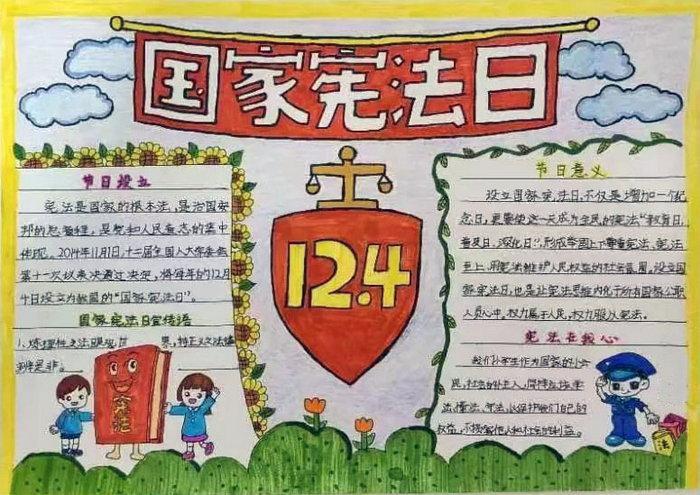 国家宪法日
节日设立
宪法是国家的根本法,是治国安
邦的总章程,是党和人民意志的集中
体现。2014年11月1日,十二届全国人大常委会
第十一次以表决通过决定,将每年的12月
4日设立为我国的“国家宪法日”。
国家宪法日宣传语
1、
宪法
12.4
节日意义
设立国家宪法日,不仅是增加一个纪
念日,更要使这一天成为全民的宪法“教育日、
普及日、深化日”,形成举国上下尊重宪法、宪法
至上、用宪法维护人民权益的社会氛围。设立国
家宪法日,也是让宪法思维内化于所有国家公职
人员心中。权力属于人民,权力服从宪法。
宪法在我心
我们小学生作为国家的小公
民,社会的小主人,同样应该学
法、懂法、守法,以保护我们自己的
权益,不损害他人和社会的利益。
法